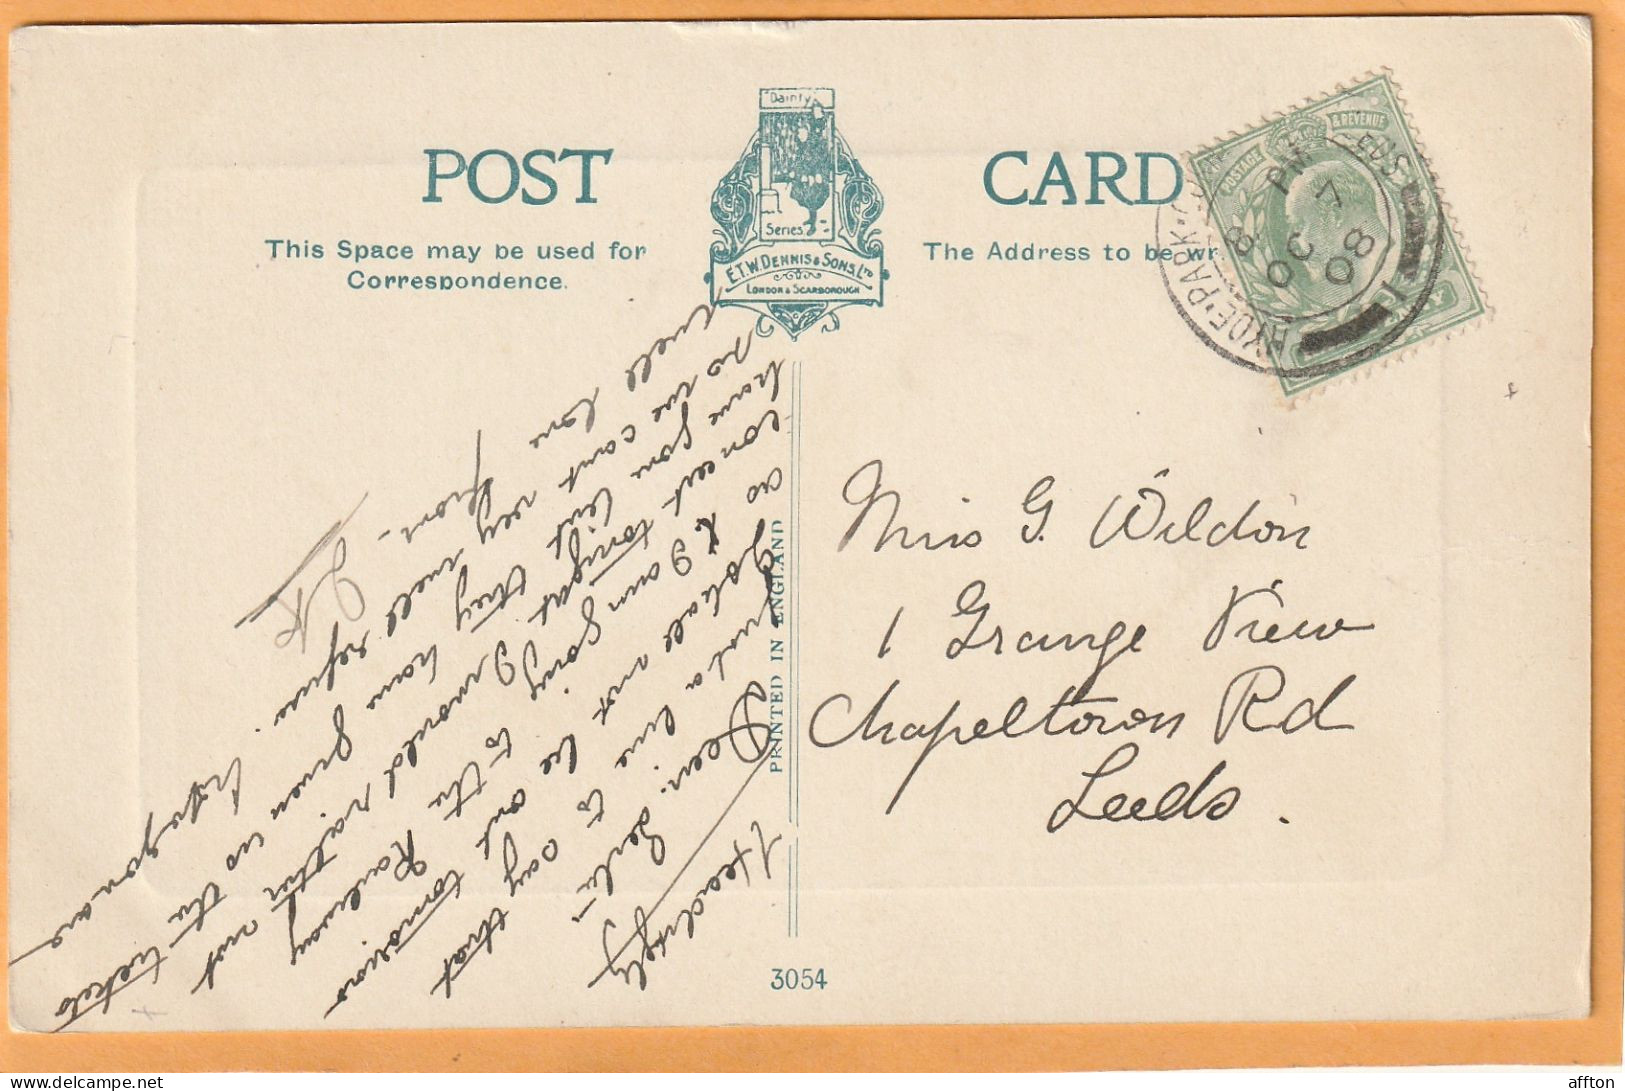 POST CARD
"Dainty"
Series
E.T.W. DENNIS & SONS, LTD
LONDON & SCARBOROUGH
This Space may be used for
Correspondence.
The Address to be wr
POSTAGE & REVENUE
HYDE PARK
8 PM
OC 7
08
1
Headingly
Dear
Just a line to say that
I shall not be out tomorrow
as I am going to the Railway
concert tonight I would rather not
have gone but they have given us the tickets
so we cant very well refuse. Hope you are
well love from
Miss G. Wildon
1 Grange View
Chapeltown Rd
Leeds.
PRINTED IN ENGLAND
3054
affton